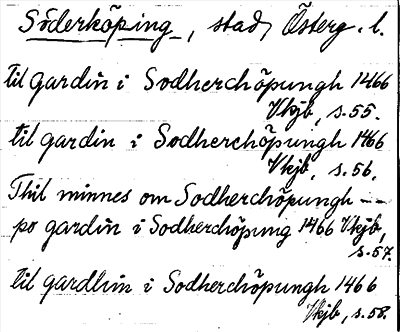 Söderköping, stad, Österg. l.
til gardin i Sodherchöpungh 1466
Vkjb, s. 55.
til gardin i Sodherchöpungh 1466
Vkjb, s. 56.
Thil minnes om Sodherchöpungh --
po gardin i Sodherchöpung 1466 Vkjb,
s. 57.
til gardhin i Sodherchöpungh 1466
Vkjb, s. 58.